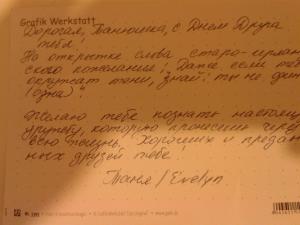 Grafik Werkstatt
Дорогая, Танюшка, с Днем Друга
тебя!
На открытке слова старо-ирланд
ского пожелания: "Даже если тебя
окружат тени, знай: ты не один
(одна)".
Желаю тебе познать настоящую
дружбу, которую пронесешь через
всю жизнь. Хороших и предан
ных друзей тебе!
Таня / Evelyn